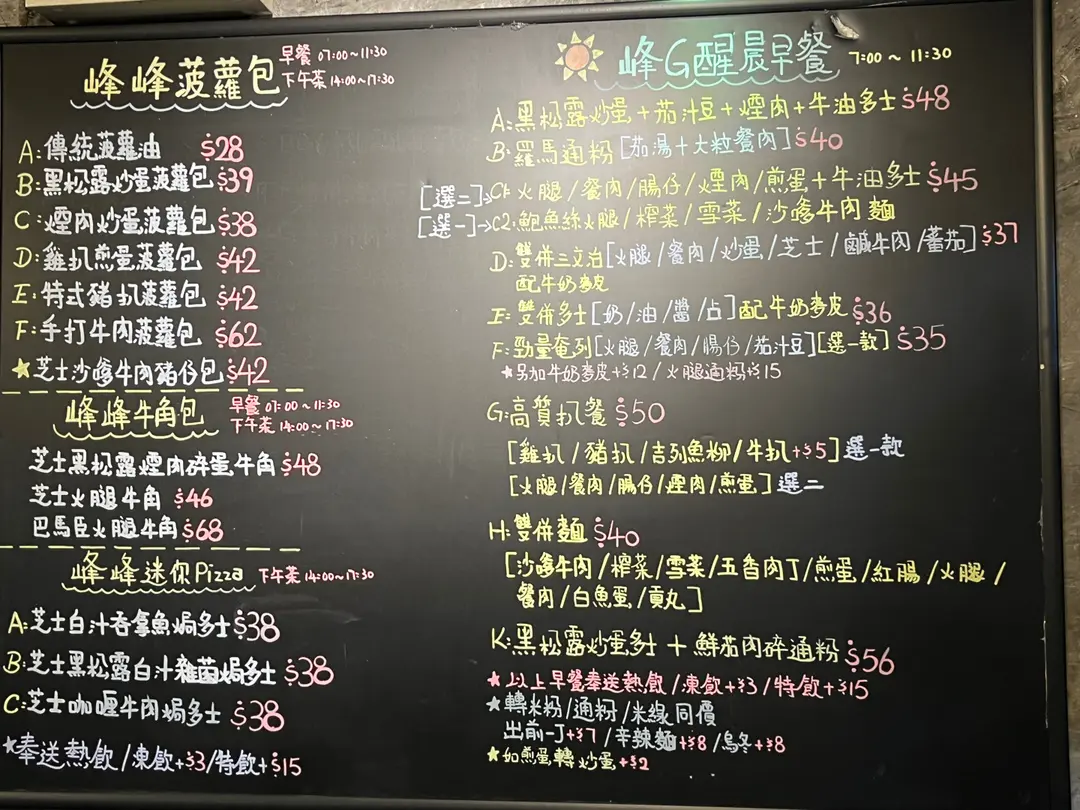 峰峰菠蘿包 早餐 07:00~11:30
下午茶 14:00~17:30
A:傳統菠蘿油 $28
B:黑松露炒蛋菠蘿包 $39
C:煙肉炒蛋菠蘿包 $38
D:雞扒煎蛋菠蘿包 $42
E:特式豬扒菠蘿包 $42
F:手打牛肉菠蘿包 $62
★芝士沙嗲牛肉豬仔包 $42
峰峰牛角包 早餐 07:00~11:30
下午茶 14:00~17:30
芝士黑松露煙肉碎蛋牛角 $48
芝士火腿牛角 $46
巴馬臣火腿牛角 $68
峰峰迷你Pizza 下午茶 14:00~17:30
A:芝士白汁吞拿魚焗多士 $38
B:芝士黑松露白汁雜菌焗多士 $38
C:芝士咖喱牛肉焗多士 $38
★奉送熱飲/凍飲+$3/特飲+$15
峰G醒晨早餐 7:00~11:30
A:黑松露炒蛋+茄汁豆+煙肉+牛油多士 $48
B:羅馬通粉[茄湯+大粒餐肉] $40
[選二]→C1:火腿/餐肉/腸仔/煙肉/煎蛋+牛油多士 $45
[選一]→C2:鮑魚絲火腿/榨菜/雪菜/沙嗲牛肉麵
D:雙併三文治[火腿/餐肉/炒蛋/芝士/鹹牛肉/蕃茄] $37
配牛奶麥皮
E:雙併多士[奶/油/醬/占]配牛奶麥皮 $36
F:勁量奄列[火腿/餐肉/腸仔/茄汁豆][選一款] $35
★另加牛奶麥皮+$12/火腿通粉+$15
G:高質扒餐 $50
[雞扒/豬扒/吉列魚柳/牛扒+$5]選一款
[火腿/餐肉/腸仔/煙肉/煎蛋]選二
H:雙併麵 $40
[沙嗲牛肉/榨菜/雪菜/五香肉丁/煎蛋/紅腸/火腿/
餐肉/白魚蛋/貢丸]
K:黑松露炒蛋多士+鮮茄肉碎通粉 $56
★以上早餐奉送熱飲/凍飲+$3/特飲+$15
★轉米粉/通粉/米線同價
出前一丁+$7/辛辣麵+$8/烏冬+$8
★如煎蛋轉炒蛋+$2